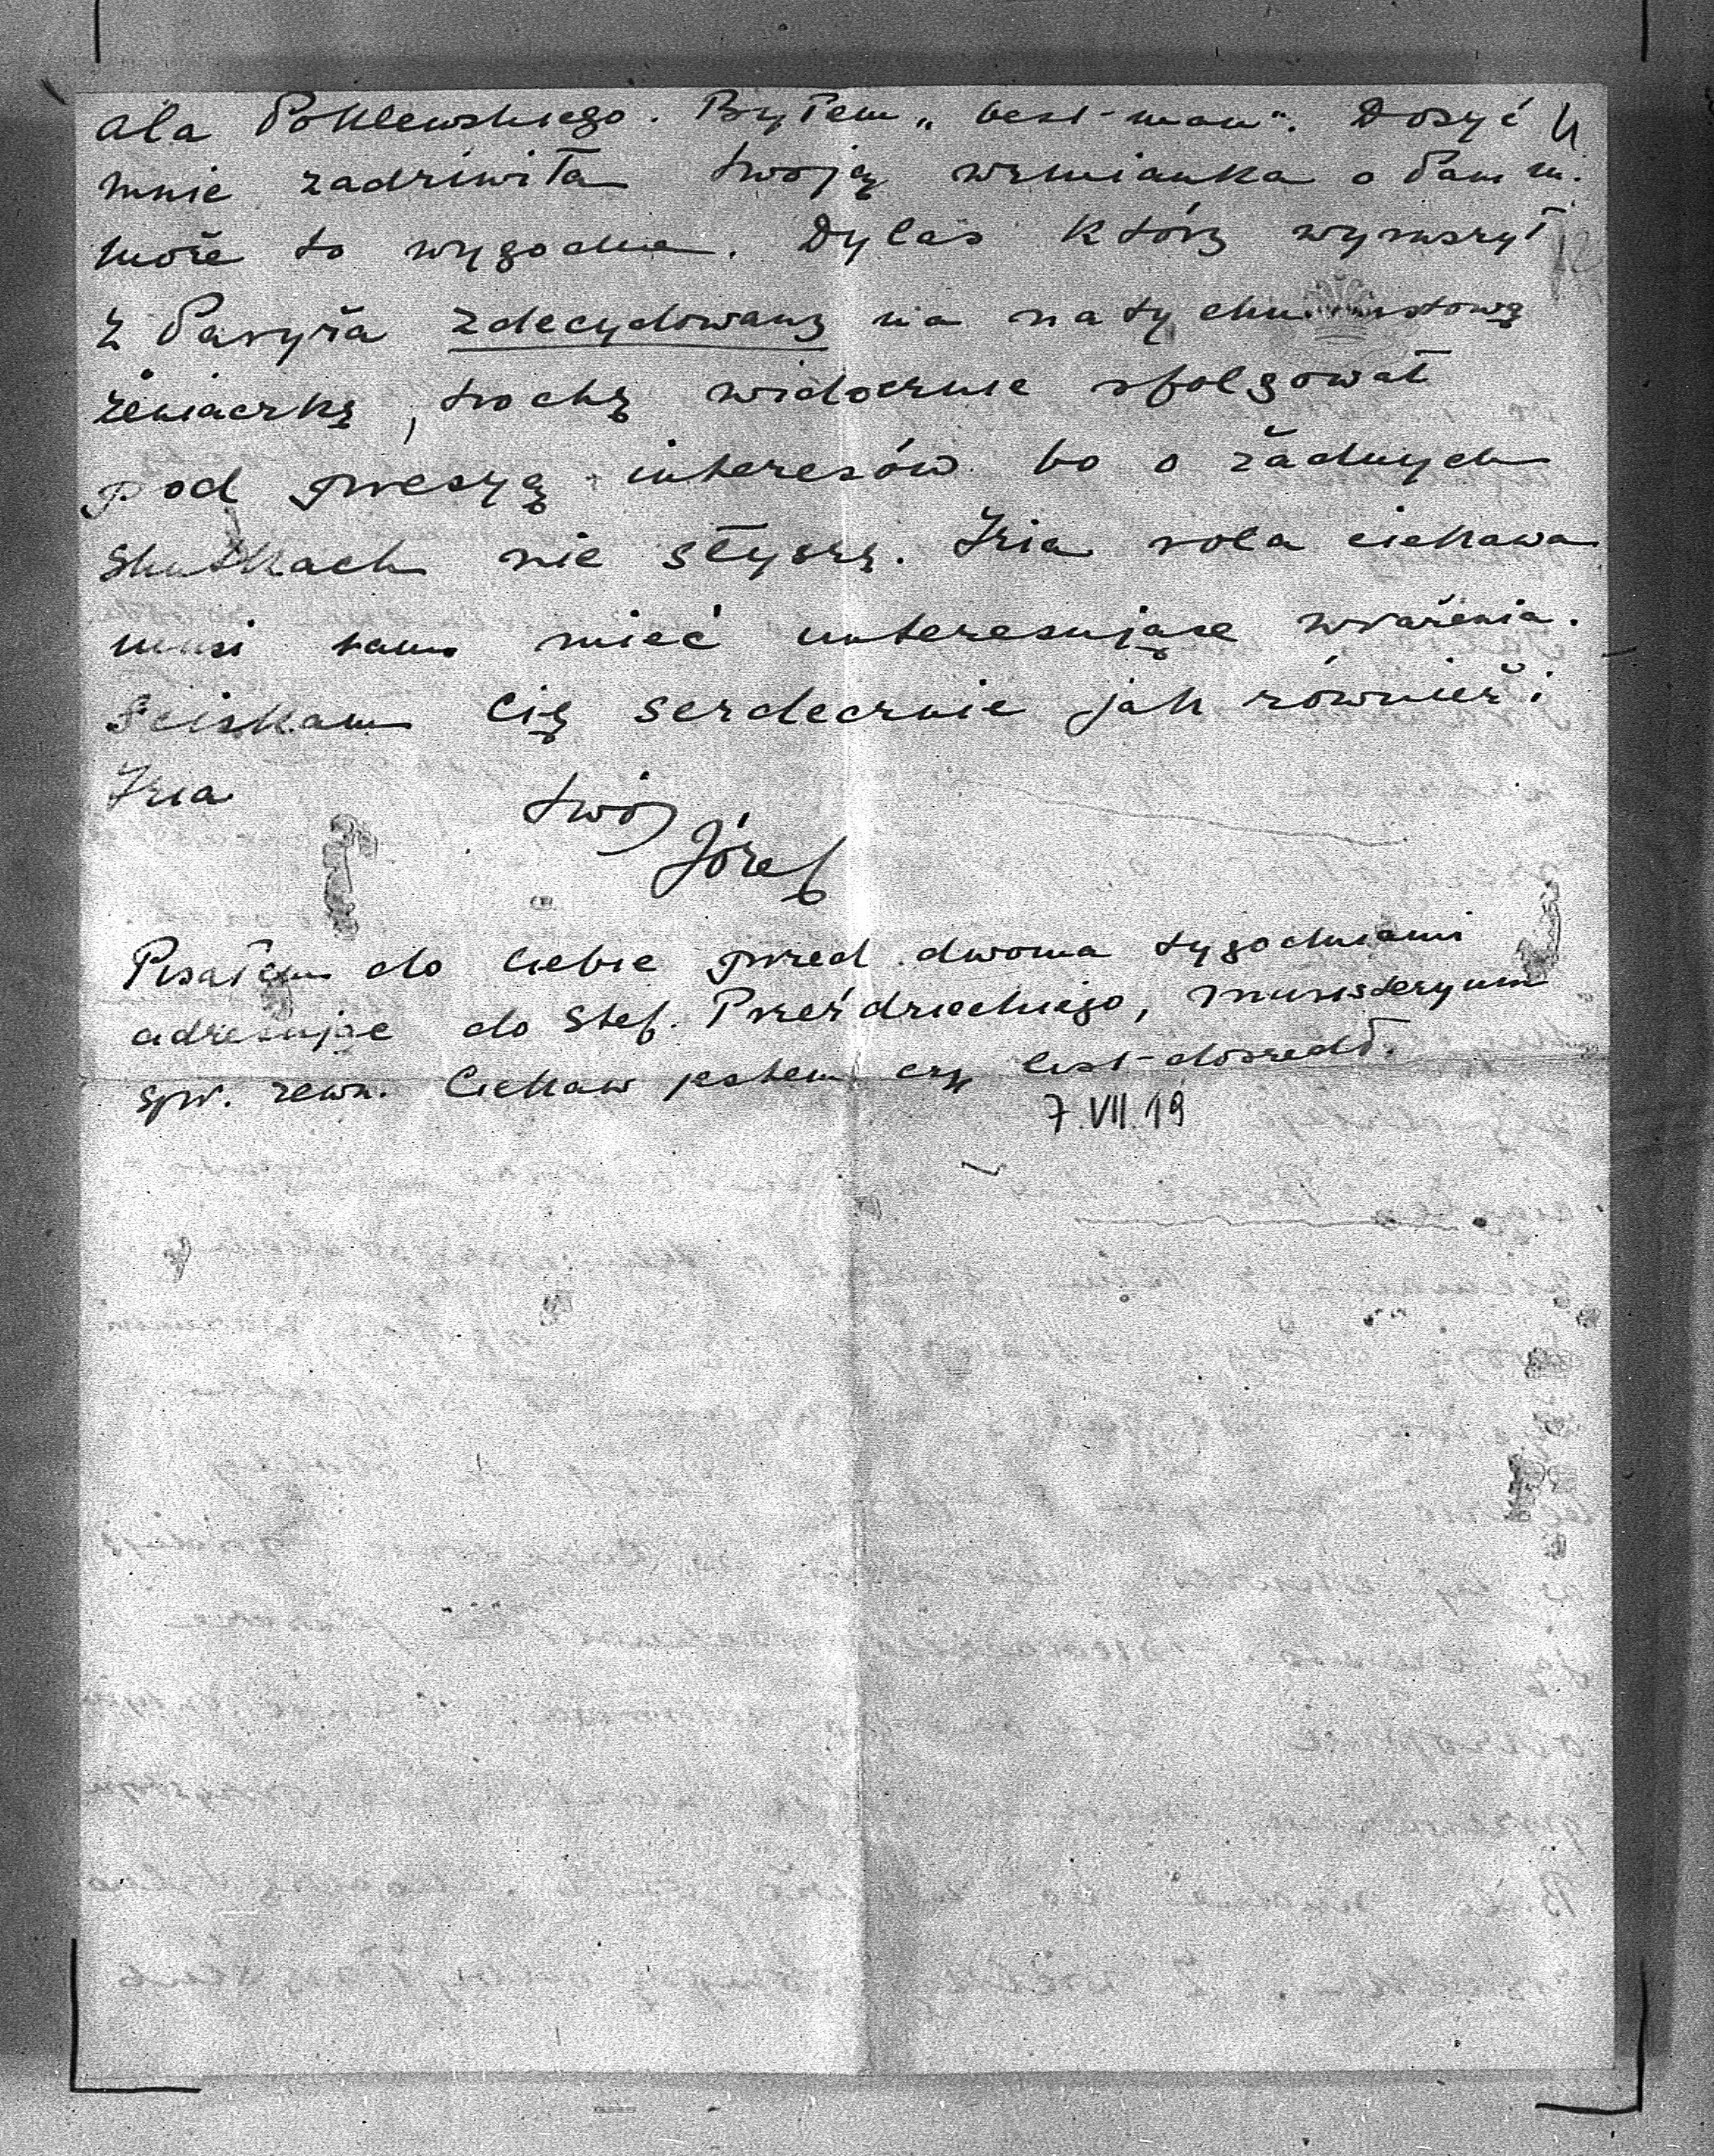 Ala Poklewskiego. Byłem „best-man“. Dosyć 4
mnie zadziwiła twoją wzmianka o Pani M.
może to wygodne. Dylas który wyruszył
z Paryża zdecydowany na natychmiastową
żeniaczkę, trochę widocznie sfolgował
pod presyą interesów bo o żadnych
skutkach nie słyszę. Izia rola ciekawa
musi sam mieć interesujące wrażenia.
Ściskam Cię serdecznie jak również i
Izia
twój
Józef
Pisałem do Ciebie przed dwoma tygodniami
adresując do Stef. Przeździeckiego, Ministeryum
spr. zewn. Ciekaw jestem czy list doszedł.
7.VII.19